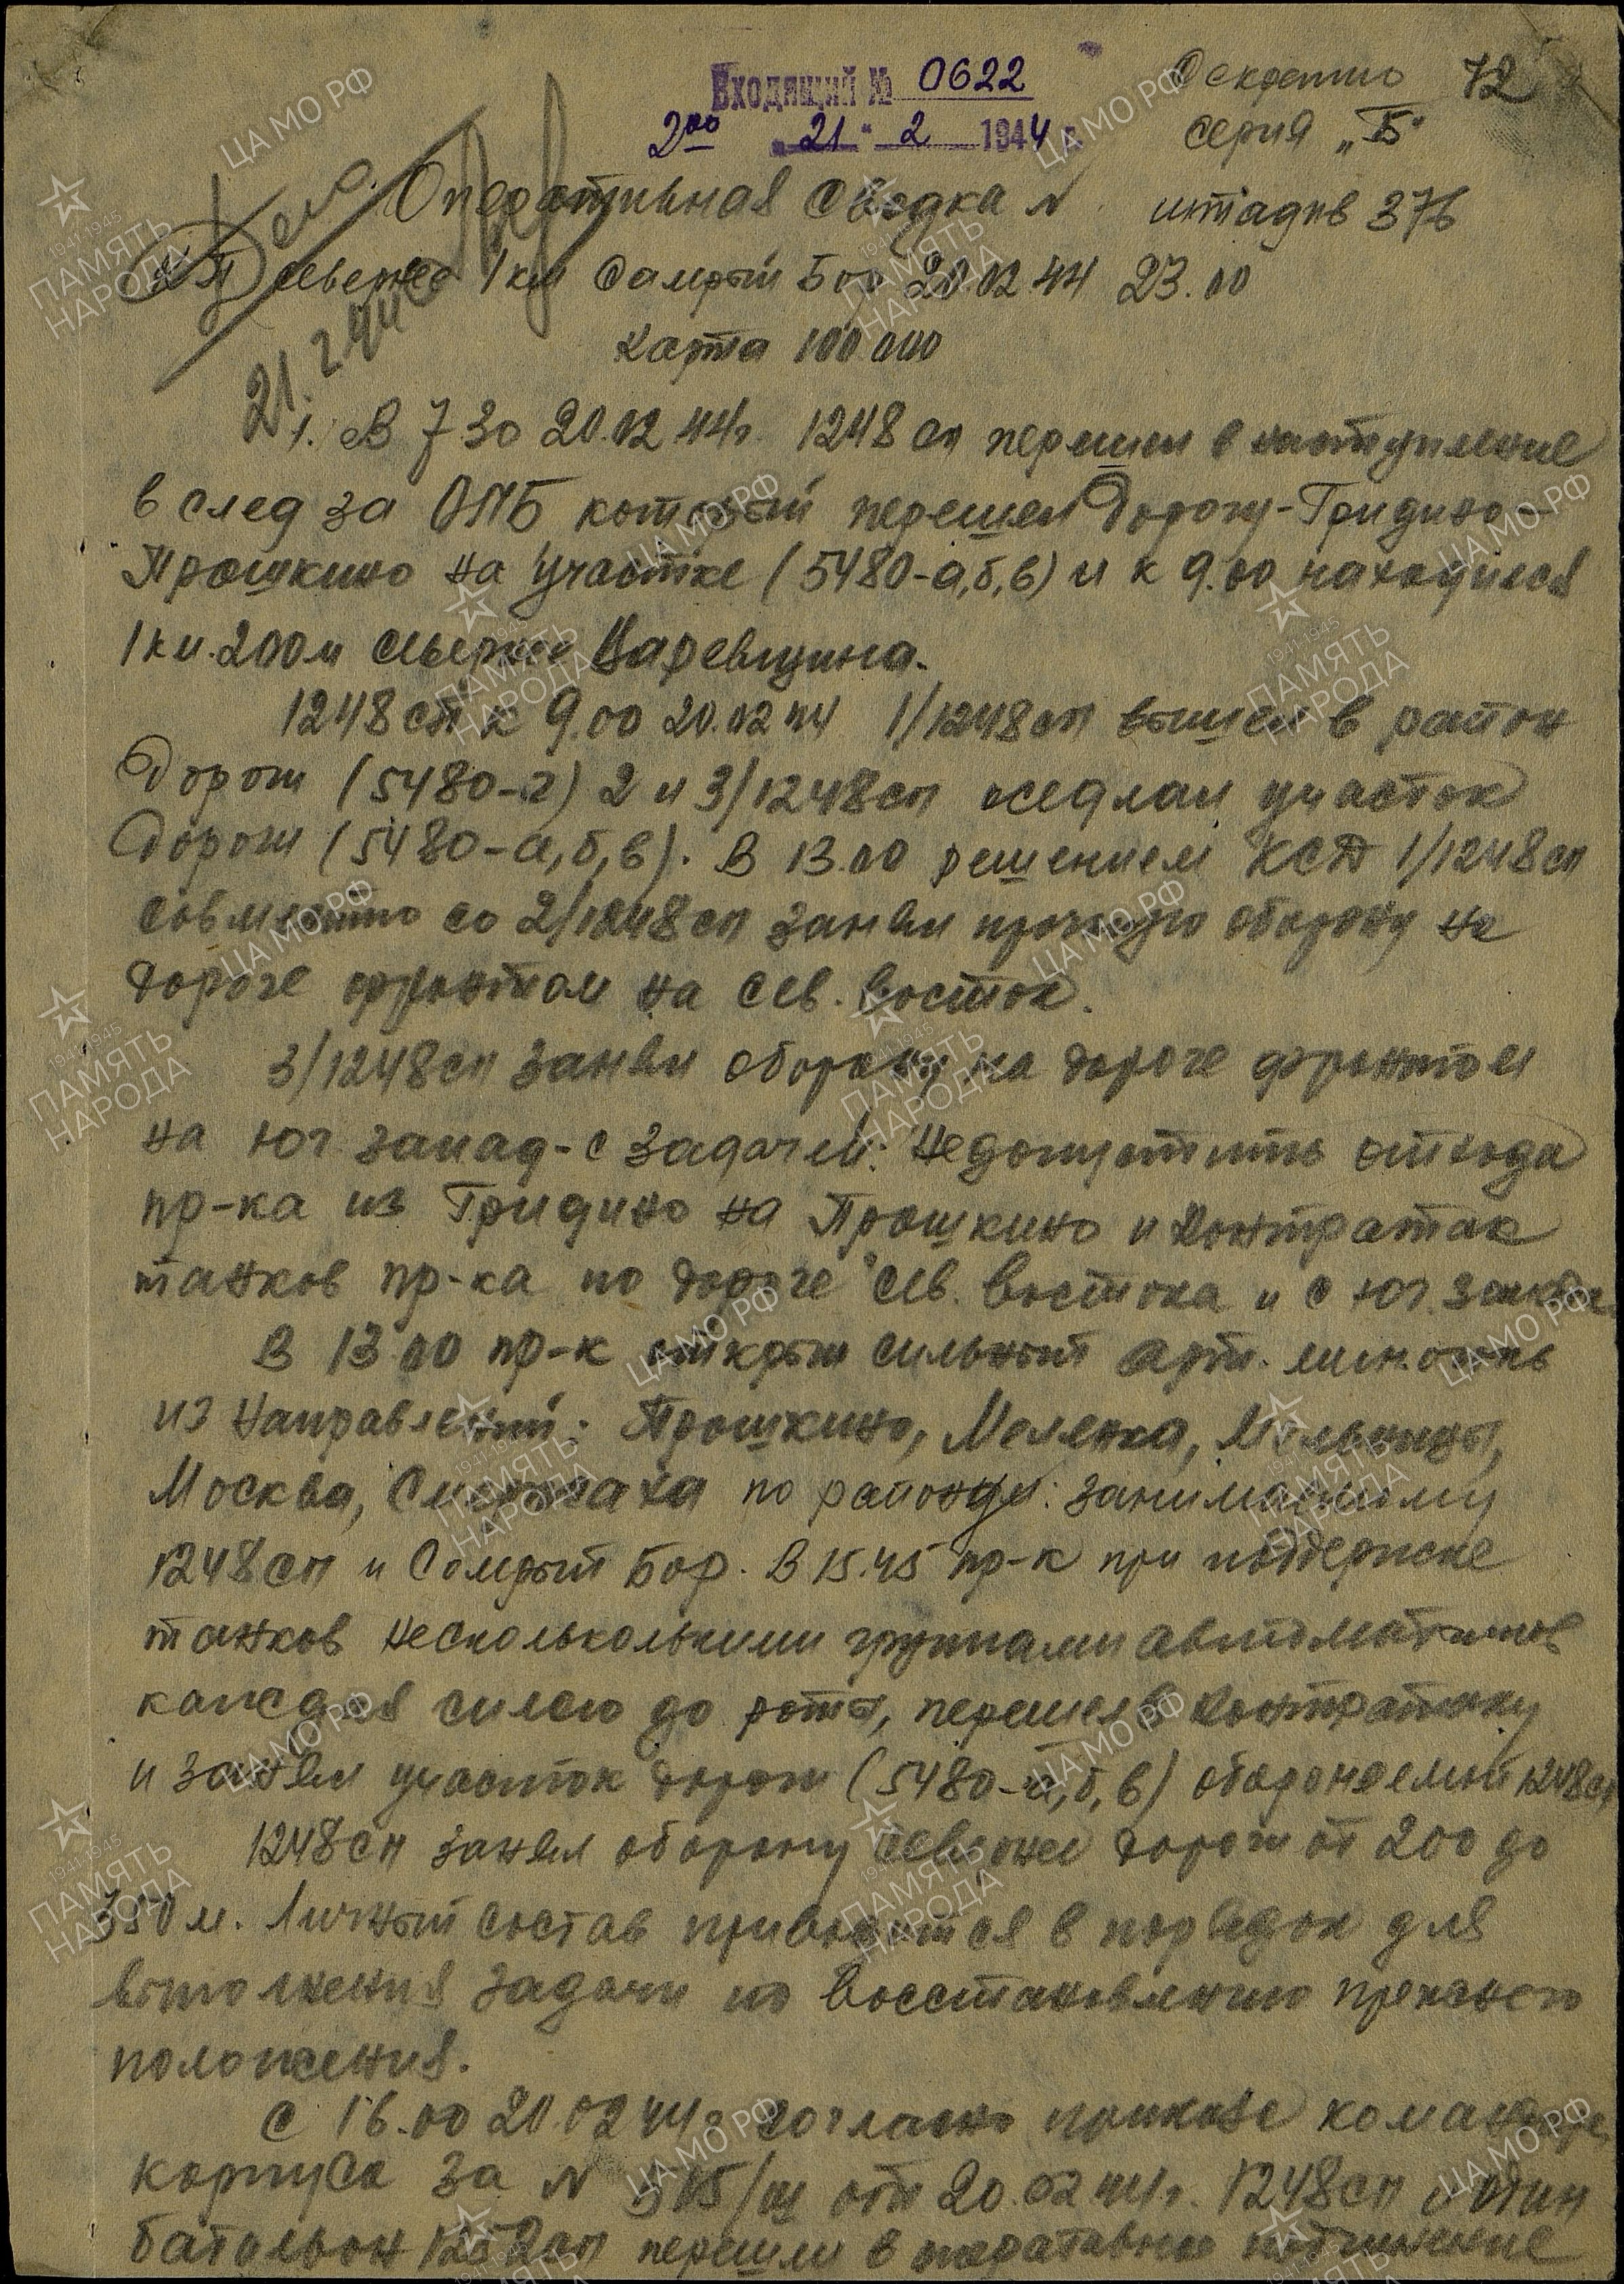 Входящий № 0622
Секретно 72
2 00 "21" 2 1944 г.
серия „Б"
Оперативная сводка № штадив 376
КП севернее 1 км Самрый Бор 20.02.44 23.00
Карта 100 000
21.2.44
1. В 7 30 20.02.44г. 1248 сп перешел в наступление
в след за ОЛБ который перешел Дорогу-Гридино-
Прошкино на участке (5480-а,б,в) и к 9.00 находился
1 км. 200 м севернее Царевщина.
1248 сп к 9.00 20.02.44 1/1248 сп вышел в район
Дорог (5480-г) 2 и 3/1248 сп оседлал участок
Дороги (5480-а,б,в). В 13.00 решением КСД 1/1248 сп
совместно со 2/1248 сп занял прочную оборону на
дороге фронтом на сев. восток.
3/1248 сп занял оборону на дороге фронтом
на юг. запад - с задачей: Недопустить отхода
пр-ка из Гридино на Прошкино и контратак
танков пр-ка по дороге с сев. востока и с юг. запада
В 13.00 пр-к открыл сильный арт. мин. огонь
из направлений: Прошкино, Меленка, Мельницы,
Москва, по району: занимаемому
1248 сп и Самрый Бор. В 15.45 пр-к при поддержке
танков несколькольними группами автоматчиков
каждая силою до роты, перешел в контратаку
и занял участок дороги (5480-а,б,в) обороняемый 1248 сп
1248 сп занял оборону севернее дороги от 200 до
350 м. Личный состав приводится в порядок для
выполнения задачи по восстановлению прежнего
положения.
С 16.00 20.02.44г согласно приказа командира
корпуса за № 515/ш от 20.02.44г. 1248 сп и один
батальон 1252 сп перешли в оперативное подчинение